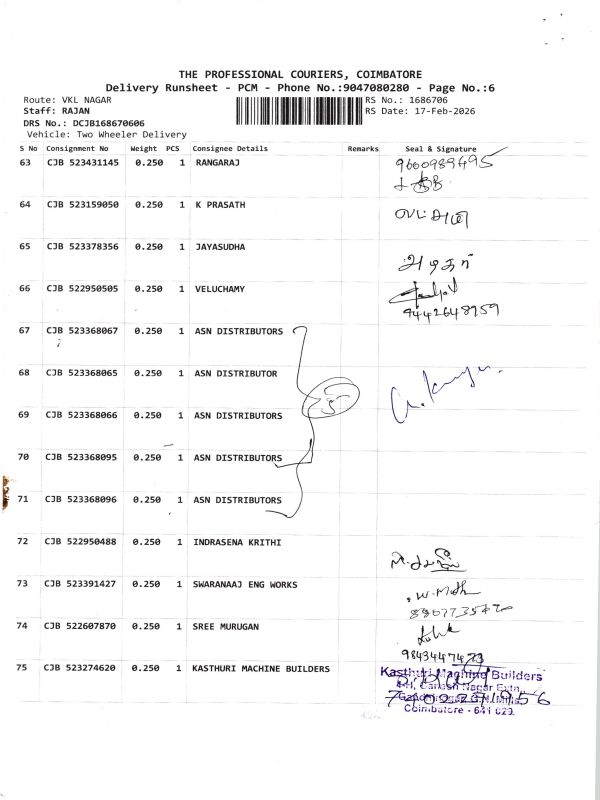 THE PROFESSIONAL COURIERS, COIMBATORE
Delivery Runsheet - PCM - Phone No.:9047080280 - Page No.:6
Route: VKL NAGAR
RS No.: 1686706
Staff: RAJAN
RS Date: 17-Feb-2026
DRS No.: DCJB168670606
Vehicle: Two Wheeler Delivery
S No Consignment No Weight PCS Consignee Details Remarks Seal & Signature
63 CJB 523431145 0.250 1 RANGARAJ 9600989495
64 CJB 523159050 0.250 1 K PRASATH
65 CJB 523378356 0.250 1 JAYASUDHA
66 CJB 522950505 0.250 1 VELUCHAMY
9442648959
67 CJB 523368067 0.250 1 ASN DISTRIBUTORS
68 CJB 523368065 0.250 1 ASN DISTRIBUTOR
69 CJB 523368066 0.250 1 ASN DISTRIBUTORS
70 CJB 523368095 0.250 1 ASN DISTRIBUTORS
71 CJB 523368096 0.250 1 ASN DISTRIBUTORS
72 CJB 522950488 0.250 1 INDRASENA KRITHI
73 CJB 523391427 0.250 1 SWARANAAJ ENG WORKS
74 CJB 522607870 0.250 1 SREE MURUGAN
9843447473
75 CJB 523274620 0.250 1 KASTHURI MACHINE BUILDERS
Kasthuri Machine Builders
Ganesh Nagar Extn.
Coimbatore - 641 029.